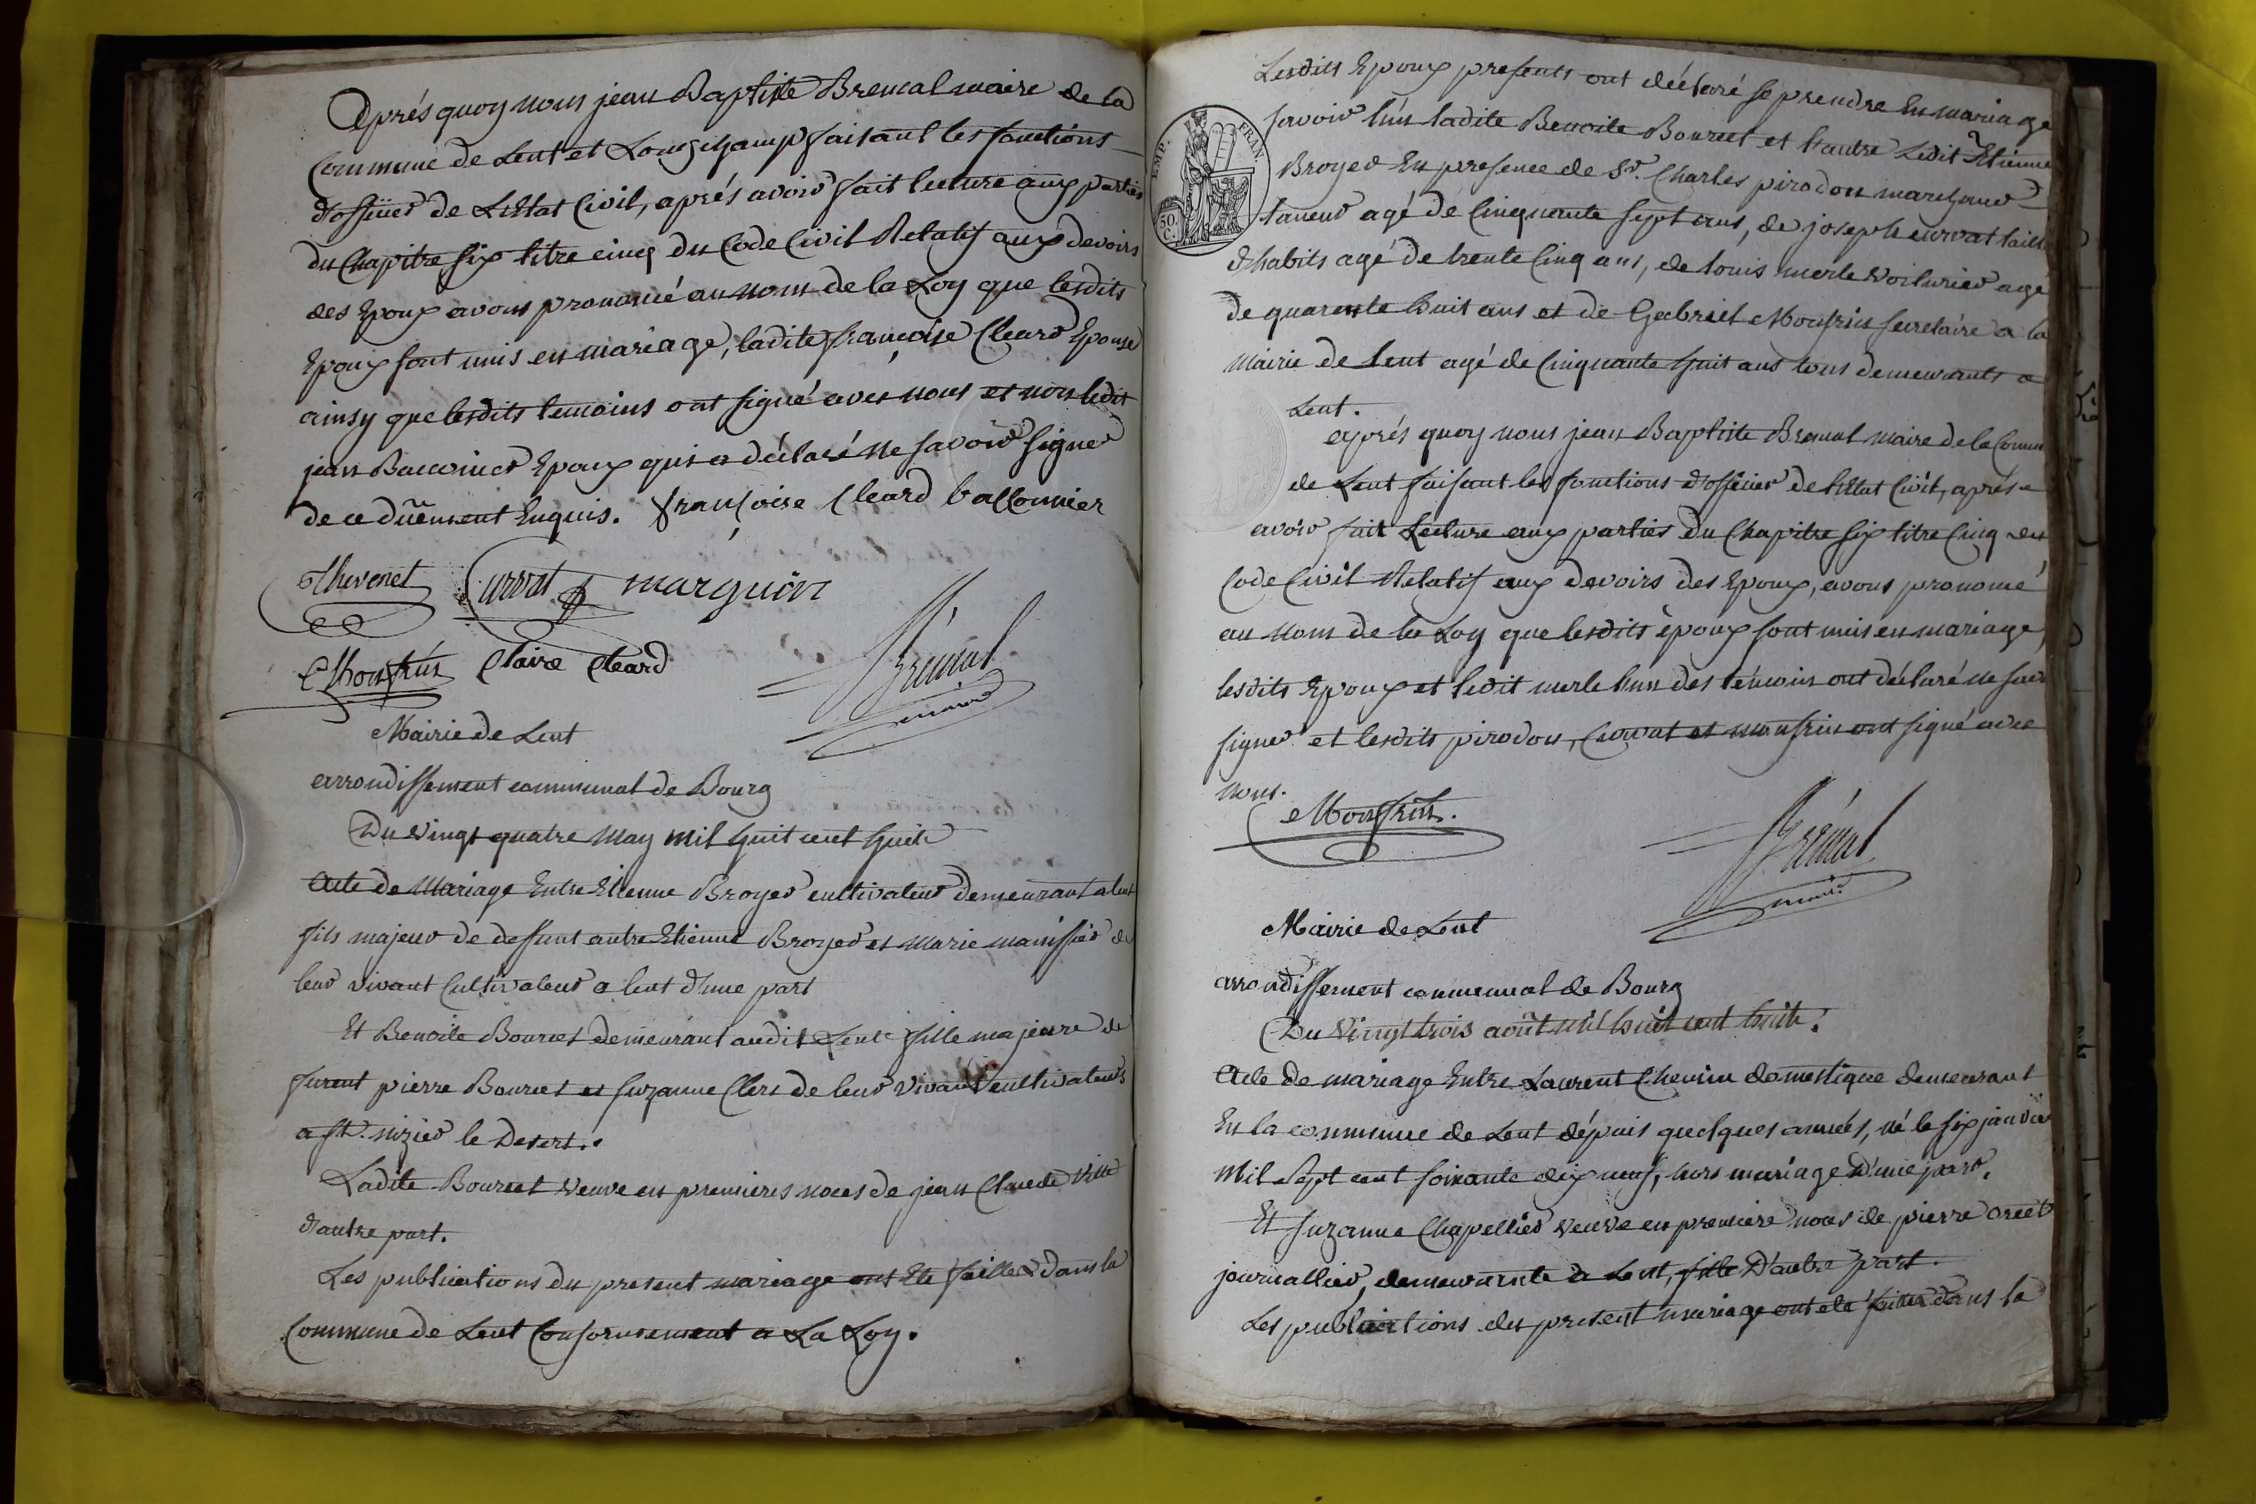 Après quoy nous jean Baptiste Breucal maire de la
Commune de Lent et Longchamp faisant les fonctions
d'officier de L'Etat Civil, après avoir fait lecture aux parties
du Chapitre six titre cinq du Code Civil Relatif aux devoirs
des Epoux avons prononcé au nom de la Loy que lesdits
Epoux sont unis en mariage, ladite françoise Cleard Epouse
ainsy que lesdits temoins ont signé avec nous et non ledit
jean Epoux qui a déclaré ne savoir signer
de ce düement Enquis. françoise Cleard
Thevenet Curvat marguin
Monfrin Claire Cleard
maire
Mairie de Lent
arrondissement communal de Bourg
Du vingt quatre May mil huit cent huit
Acte de Mariage Entre Etienne Broyer cultivateur demeurant a lent
fils majeur de deffunt autre Etienne Broyer et marie manissier de
leur vivant Cultivateur a lent d'une part
Et Benoite Bourcet demeurant audit Lent fille majeure de
furent pierre Bourcet et suzanne Clerc de leur vivant cultivateurs
a St. nizier le Desert.
Ladite Bourcet veuve en premieres noces de jean Claude
d'autre part.
Les publications du present mariage ont Eté faittes dans la
Commune de Lent Conformement a La Loy.
Lesdits Epoux presents ont déclaré se prendre En mariage
savoir l'un ladite Benoite Bourcet et l'autre Ledit Etienne
Broyer En presence de Sr. Charles pirodon marchand
taneur agé de Cinquante sept ans, de joseph curvat taill
d'habits agé de trente Cinq ans, de louis merle voiturier agé
de quarente huit ans et de Gabriel Monfrin secretaire a la
mairie de lent agé de Cinquante huit ans tous demeurants a
Lent.
EMP. FRAN.
50 C.
après quoy nous jean Baptiste maire de la Commun
de Lent faisant les fonctions d'officier de l'Etat Civil, après
avoir fait Lecture aux parties du Chapitre six titre Cinq du
Code Civil Relatif aux devoirs des Epoux, avons prononcé
au nom de la Loy que lesdits époux sont unis en mariage,
lesdits Epoux et ledit merle l'un des témoins ont déclaré ne savoir
signer et lesdits pirodon, Curvat et monfrin ont signé avec
nous.
Monfrin.
maire
Mairie de Lent
arrondissement communal de Bourg
Du Vingt trois août mil huit cent huit.
Acte de mariage Entre Laurent Chenin domestique demeurant
En la commune de Lent dépuis quelques années, né le six janvier
mil sept cent soixante dix neuf, hors mariage d'une part.
Et suzanne Chapellier veuve en premiere noces de pierre
journallier, demeurante a Lent, fille D'autre part.
Les publications du present mariage ont eté faittes dans la